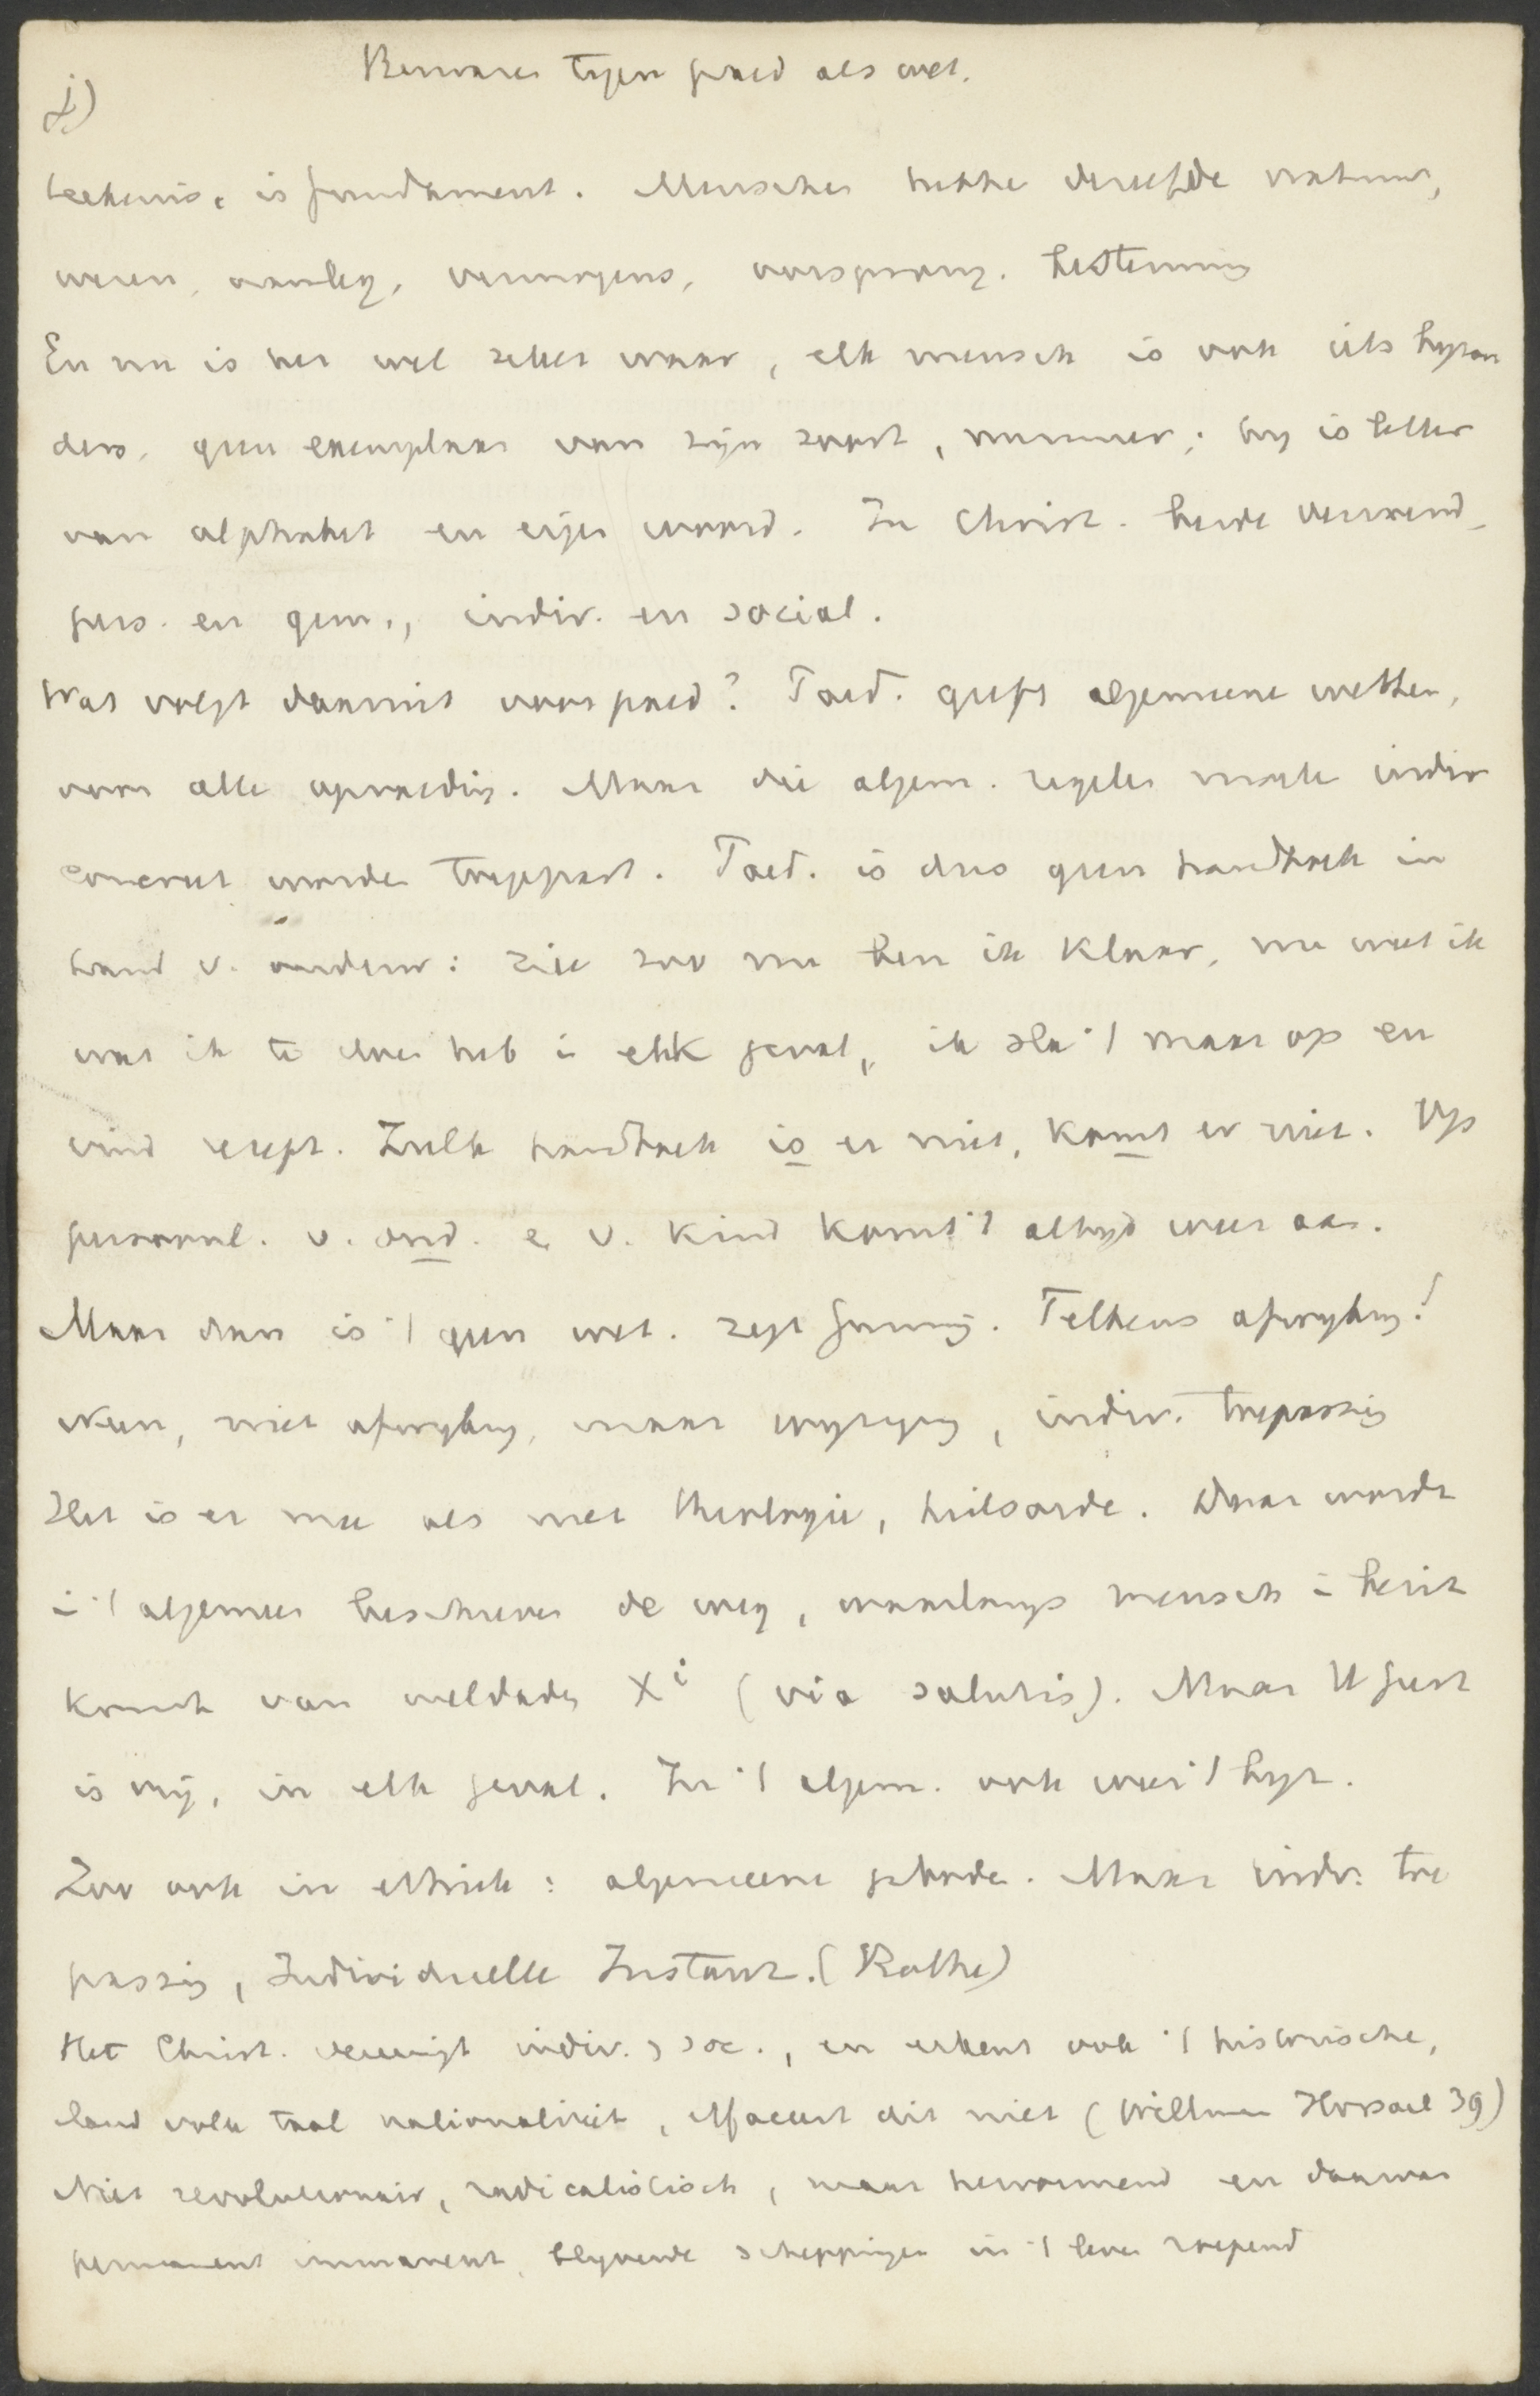 Bezwaren tegen paed als wet.
d)
beteekenis. is fundament. Menschen hebbe dezelfde natuur,
wezen, aanleg, vermogens, oorsprong. bestemming
En nu is het wel zeker waar, elk mensch is ook iets byzon
ders. geen exemplaar van zijn soort, nummer; hy is letter
van alphabet en eigen woord. In Christ. beide verzoend
pers. en gem., indiv. en social.
Wat volgt daaruit voor paed? Paed. geeft algemeene wetten,
voor alle opvoeding. Maar die algem. regelen moete indiv
concreet worde toegepast. Paed. is dus geen handboek in
hand v. ouders: zie zoo nu ben ik klaar, nu weet ik
wat ik te doen heb in elk geval, ik sla 't maar op en
vind recept. Zulk handboek is er niet, komt er niet. Op
persoonl. v. ond. e v. kind komt 't altyd weer aan.
Maar dan is 't geen wet. zegt Gunning. Telkens afwyking!
Neen, niet afwyking, maar wyziging, indiv. toepassing
Het is er mee als met theologie, heilsorde. Daar wordt
in 't algemeen beschreven de weg, waarlangs mensch in bezit
komt van weldaden Xi (via salutis). Maar H Geest
is vrij, in elk geval. In 't algem. ook weer 't byz.
Zoo ook in ethiek: algemeene geboden. Maar indiv. toe
passing, Individuelle Instanz. (Rothe)
Het Christ. vereenigt indiv. > soc., en erkent ook 't historische,
land volk taal nationaliteit, effaceert dit niet (Willmann Hörsaal 39)
Niet revolutionair, radicalistisch, maar hervormend en daarvan
permanent immanent, blyvende scheppingen in 't leven roepend